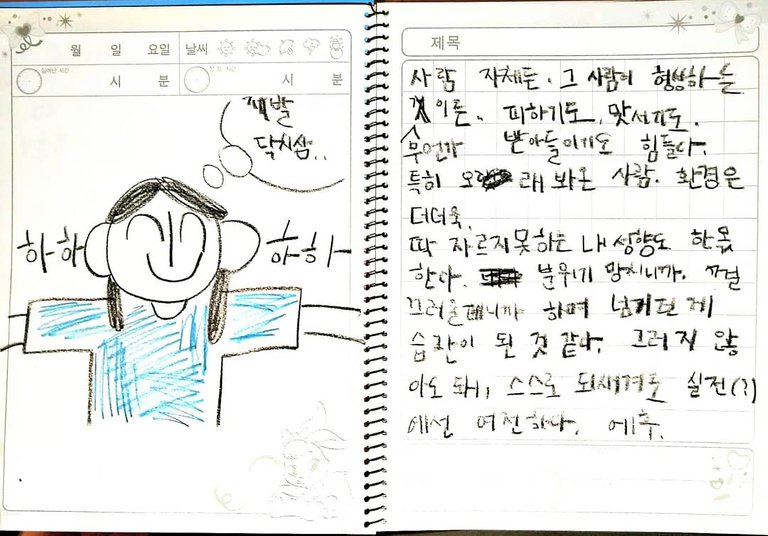 월 일 요일 날씨
일어난 시간 시 분 시 분
제발
닥치삼..
하하 하하
제목
사람 자체든. 그 사람이 형성하는
것이든. 피하기도, 맞서기도.
무언가 받아들이기도 힘들다.
특히 오래 봐온 사람. 환경은
더더욱.
딱 자르지못하는 내 성향도 한몫
한다. 분위기 망치니까.
끄러울테니까 하며 넘기던 게
습관이 된 것 같다. 그러지 않
아도 돼, 스스로 되새겨도 실전(?)
에선 여전하다. 에휴.